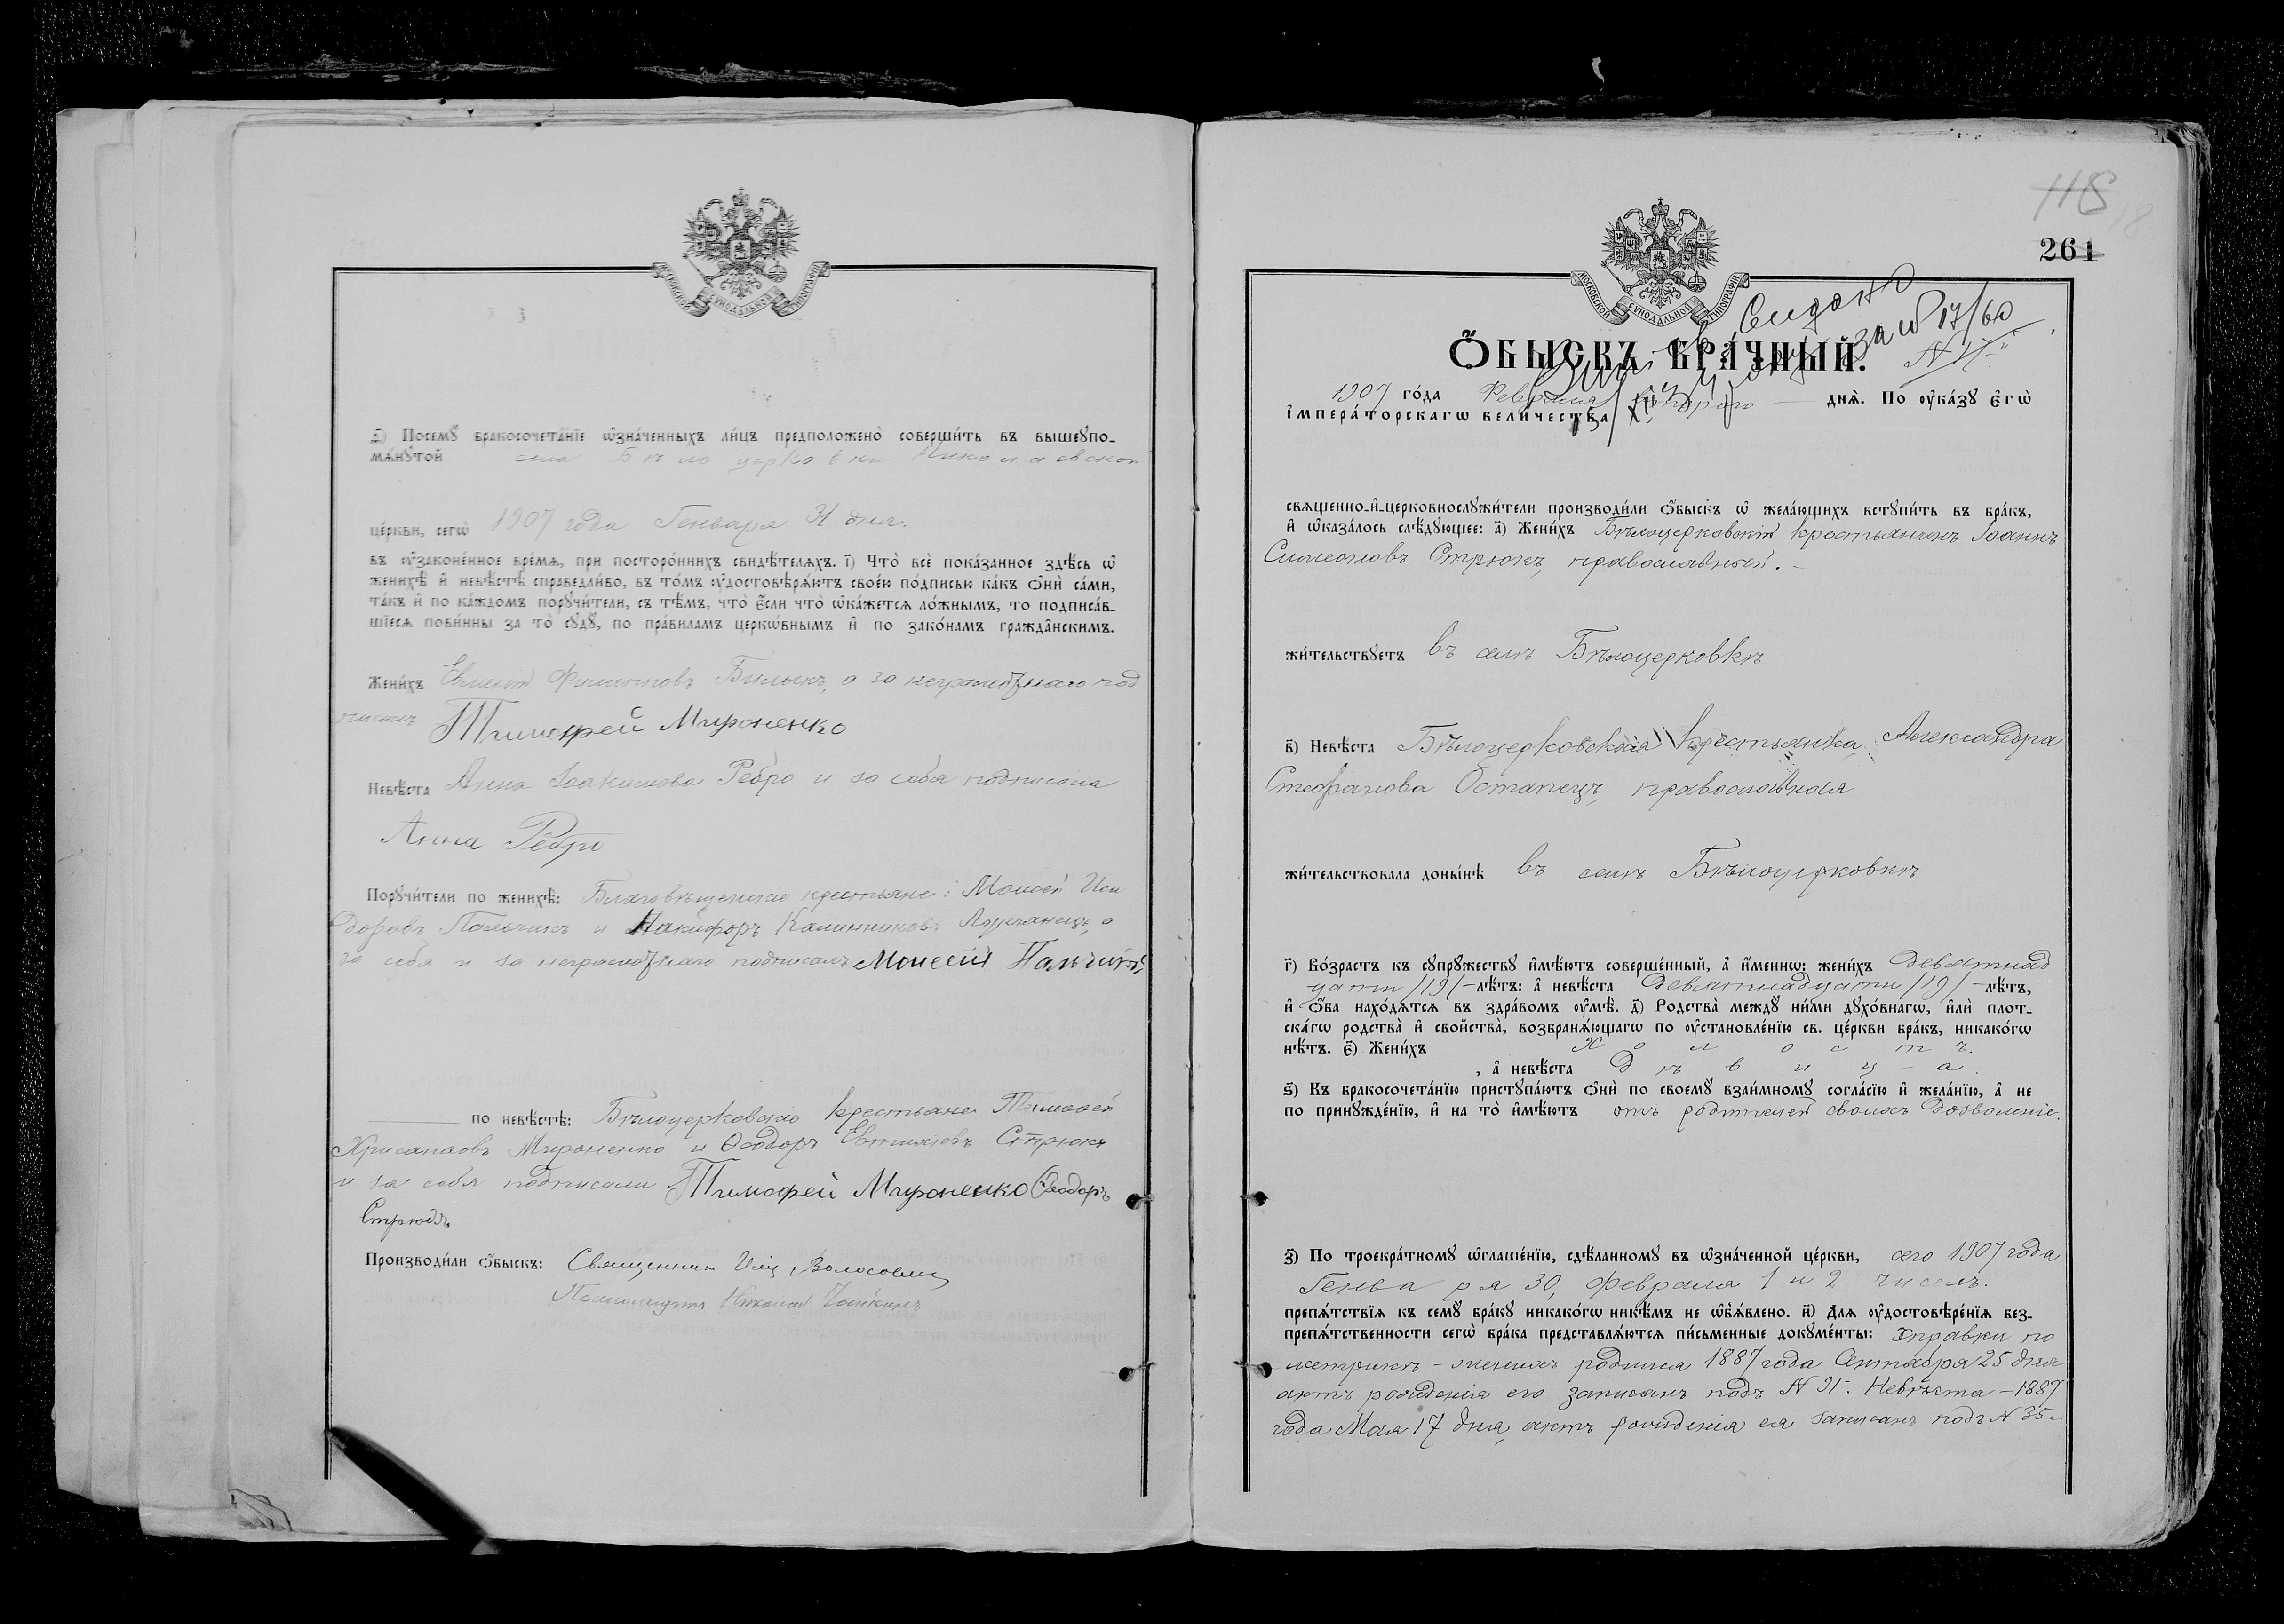 МОСКОВСКОЙ СѴНОДАЛЬНОЙ ТИПОГРАФІИ
Посемꙋ̀ бракосочета́нїе ѡ҆зна́ченныхъ ли́цъ предположено̀ соверши́ть въ вышеꙋпо-
мѧ́нꙋтой села Бѣлоцерковки Николаевской
це́ркви, сегѡ̀ 1907 года Генваря 31 дня.
въ ѹ҆зако́не́нное вре́мѧ, при посторо́ннихъ свидѣ́телѧхъ. і҃) Что̀ всѐ пока́занное здѣ́сь ѡ҆
женихѣ̀ и҆ невѣ́стѣ справедли́во, въ то́мъ ѹ҆достовѣрѧ́ютъ свое́ю по́дписью ка́къ ѻ҆нѝ са́ми,
та́къ и҆ по ка́ждомъ порꙋчи́тели, съ тѣ́мъ, что̀ є҆́сли что̀ ѡ҆ка́жетсѧ ло́жнымъ, то подписа́в-
шїесѧ пови́нны за то̀ сꙋдꙋ̀, по пра́виламъ церко́внымъ и҆ по зако́намъ гражда́нскимъ.
Жени́хъ Филиповъ Билыкъ, а за неграмотнаго под
писалъ Тимофей Мироненко
Невѣ́ста Анна Іоакимова Ребро и за себя подписала
Анна Ребро
Порꙋчи́тели по женихѣ̀: Благовѣщенскіе крестьяне: Моисей Иси
доровъ Пальчикъ и Никифоръ Калинниковъ а
за себя и за неграмотнаго подписалъ Моисей Пальчикъ
по невѣ́стѣ: Бѣлоцерковскіе крестьяне Тимофей
Мироненко и Ѳеодоръ Евтихіевъ Стрюкъ
и за себя подписали Тимофей Мироненко Ѳеодоръ
Стрюкъ
Производи́ли ѻ҆́быскъ: Священникъ Волосовъ
Псаломщикъ Николай
118
18
261
МОСКОВСКОЙ СѴНОДАЛЬНОЙ ТИПОГРАФІИ
за № 17/60
Ѻ҆́БЫСКЪ БРА́ЧНЫЙ.
1907 го́да Февраля второго днѧ̀. По ѹ҆ка́зꙋ є҆гѡ̀
і҆мпера́торскагѡ вели́чества
свѧщенно-и҆-церковнослꙋжи́тели производи́ли ѻ҆́быскъ ѡ҆ жела́ющихъ встꙋпи́ть въ бра́къ,
и҆ ѡ҆каза́лось слѣ́дꙋющее: а҃) Жени́хъ Бѣлоцерковскій крестьянинъ Іоаннъ
Симеоновъ Стрюкъ, православный.
жи́тельствꙋетъ въ селѣ Бѣлоцерковкѣ
в҃) Невѣ́ста Бѣлоцерковская крестьянка, Александра
Стефанова Остапецъ, православная
жи́тельствовала доны́нѣ въ селѣ Бѣлоцерковкѣ
г҃) Во́зрастъ къ сꙋпрꙋ́жествꙋ и҆мѣ́ютъ соверше́нный, а҆ и҆́менно: жени́хъ девятнад
цати /19/ лѣ́тъ: а҆ невѣ́ста девятнадцати /19/ лѣ́тъ,
и҆ ѻ҆́ба нахо́дѧтсѧ въ здра́вомъ ѹ҆мѣ̀. д҃) Родства̀ междꙋ̀ ни́ми дꙋхо́внагѡ, и҆лѝ плот-
ска́гѡ родства̀ и҆ сво́йства̀, возбранѧ́ющагѡ по ѹ҆становле́нїю св. це́ркви бра́къ, никако́гѡ
нѣ́тъ. є҃) Жени́хъ холостъ.
, а҆ невѣ́ста дѣвица.
ѕ҃) Къ бракосочета́нїю пристꙋпа́ютъ ѻ҆нѝ по своемꙋ̀ взаи́мномꙋ согла́сїю и҆ жела́нїю, а҆ не
по принꙋжде́нїю, и҆ на то̀ и҆мѣ́ютъ отъ родителей своихъ дозволеніе.
з҃) По троекра́тномꙋ ѡ҆глаше́нїю, сдѣ́ланномꙋ въ ѡ҆зна́ченной це́ркви, сего 1907 года
Генваря 30, февраля 1 и 2 чиселъ.
препѧ́тствїѧ къ семꙋ̀ бра́кꙋ никако́гѡ никѣ́мъ не ѡ҆б̾ѧ́влено. и҃) Длѧ ѹ҆достовѣре́нїѧ без-
препѧ́тственности сегѡ̀ бра́ка представлѧ́ютсѧ пи́сьменные докꙋме́нты: справки по
метрикѣ - женихъ родился 1887 года Сентября 25 дня
актъ рожденія его записанъ подъ № Невѣста - 1887
года Мая 17 дня, актъ рожденія ея записанъ подъ № 35